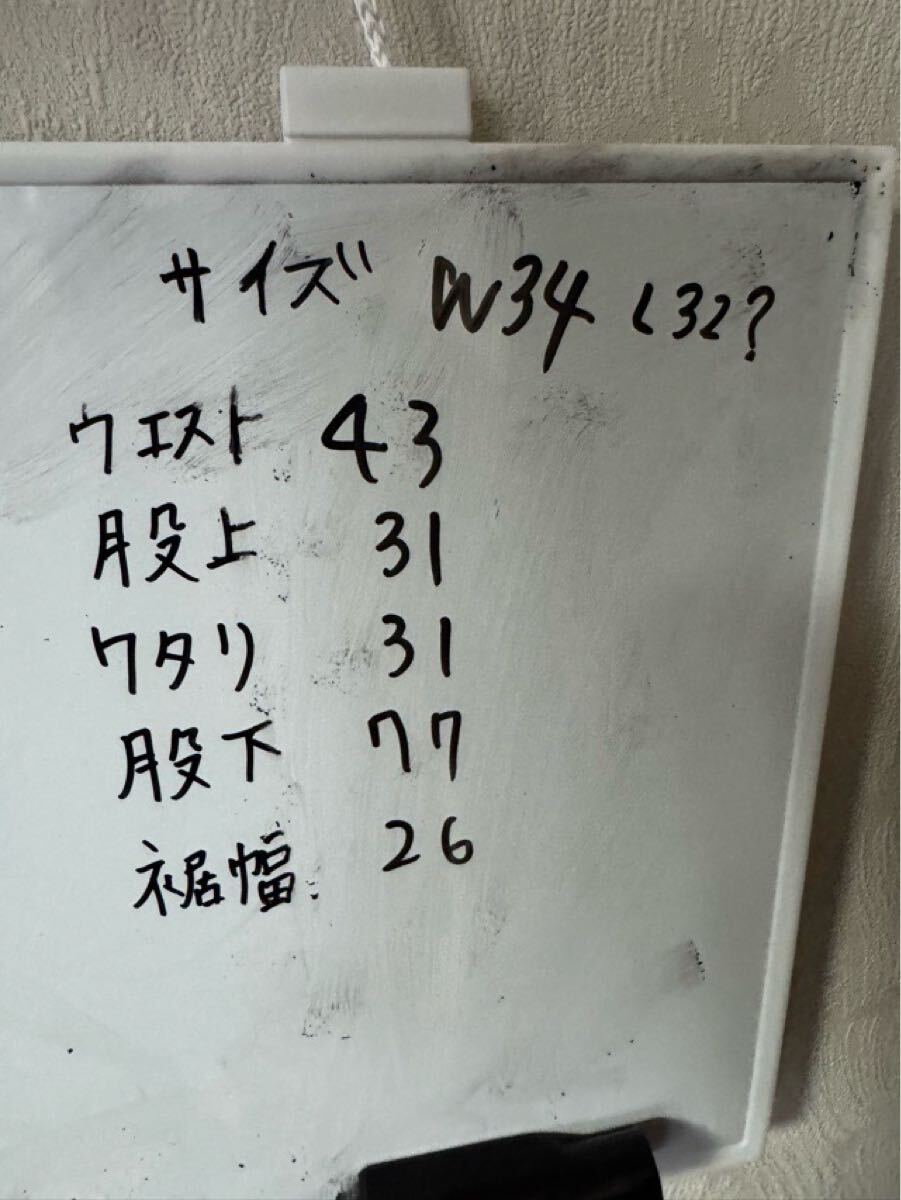 サイズ W34 L32?
ウエスト 43
股上 31
ワタリ 31
股下 77
裾幅 26